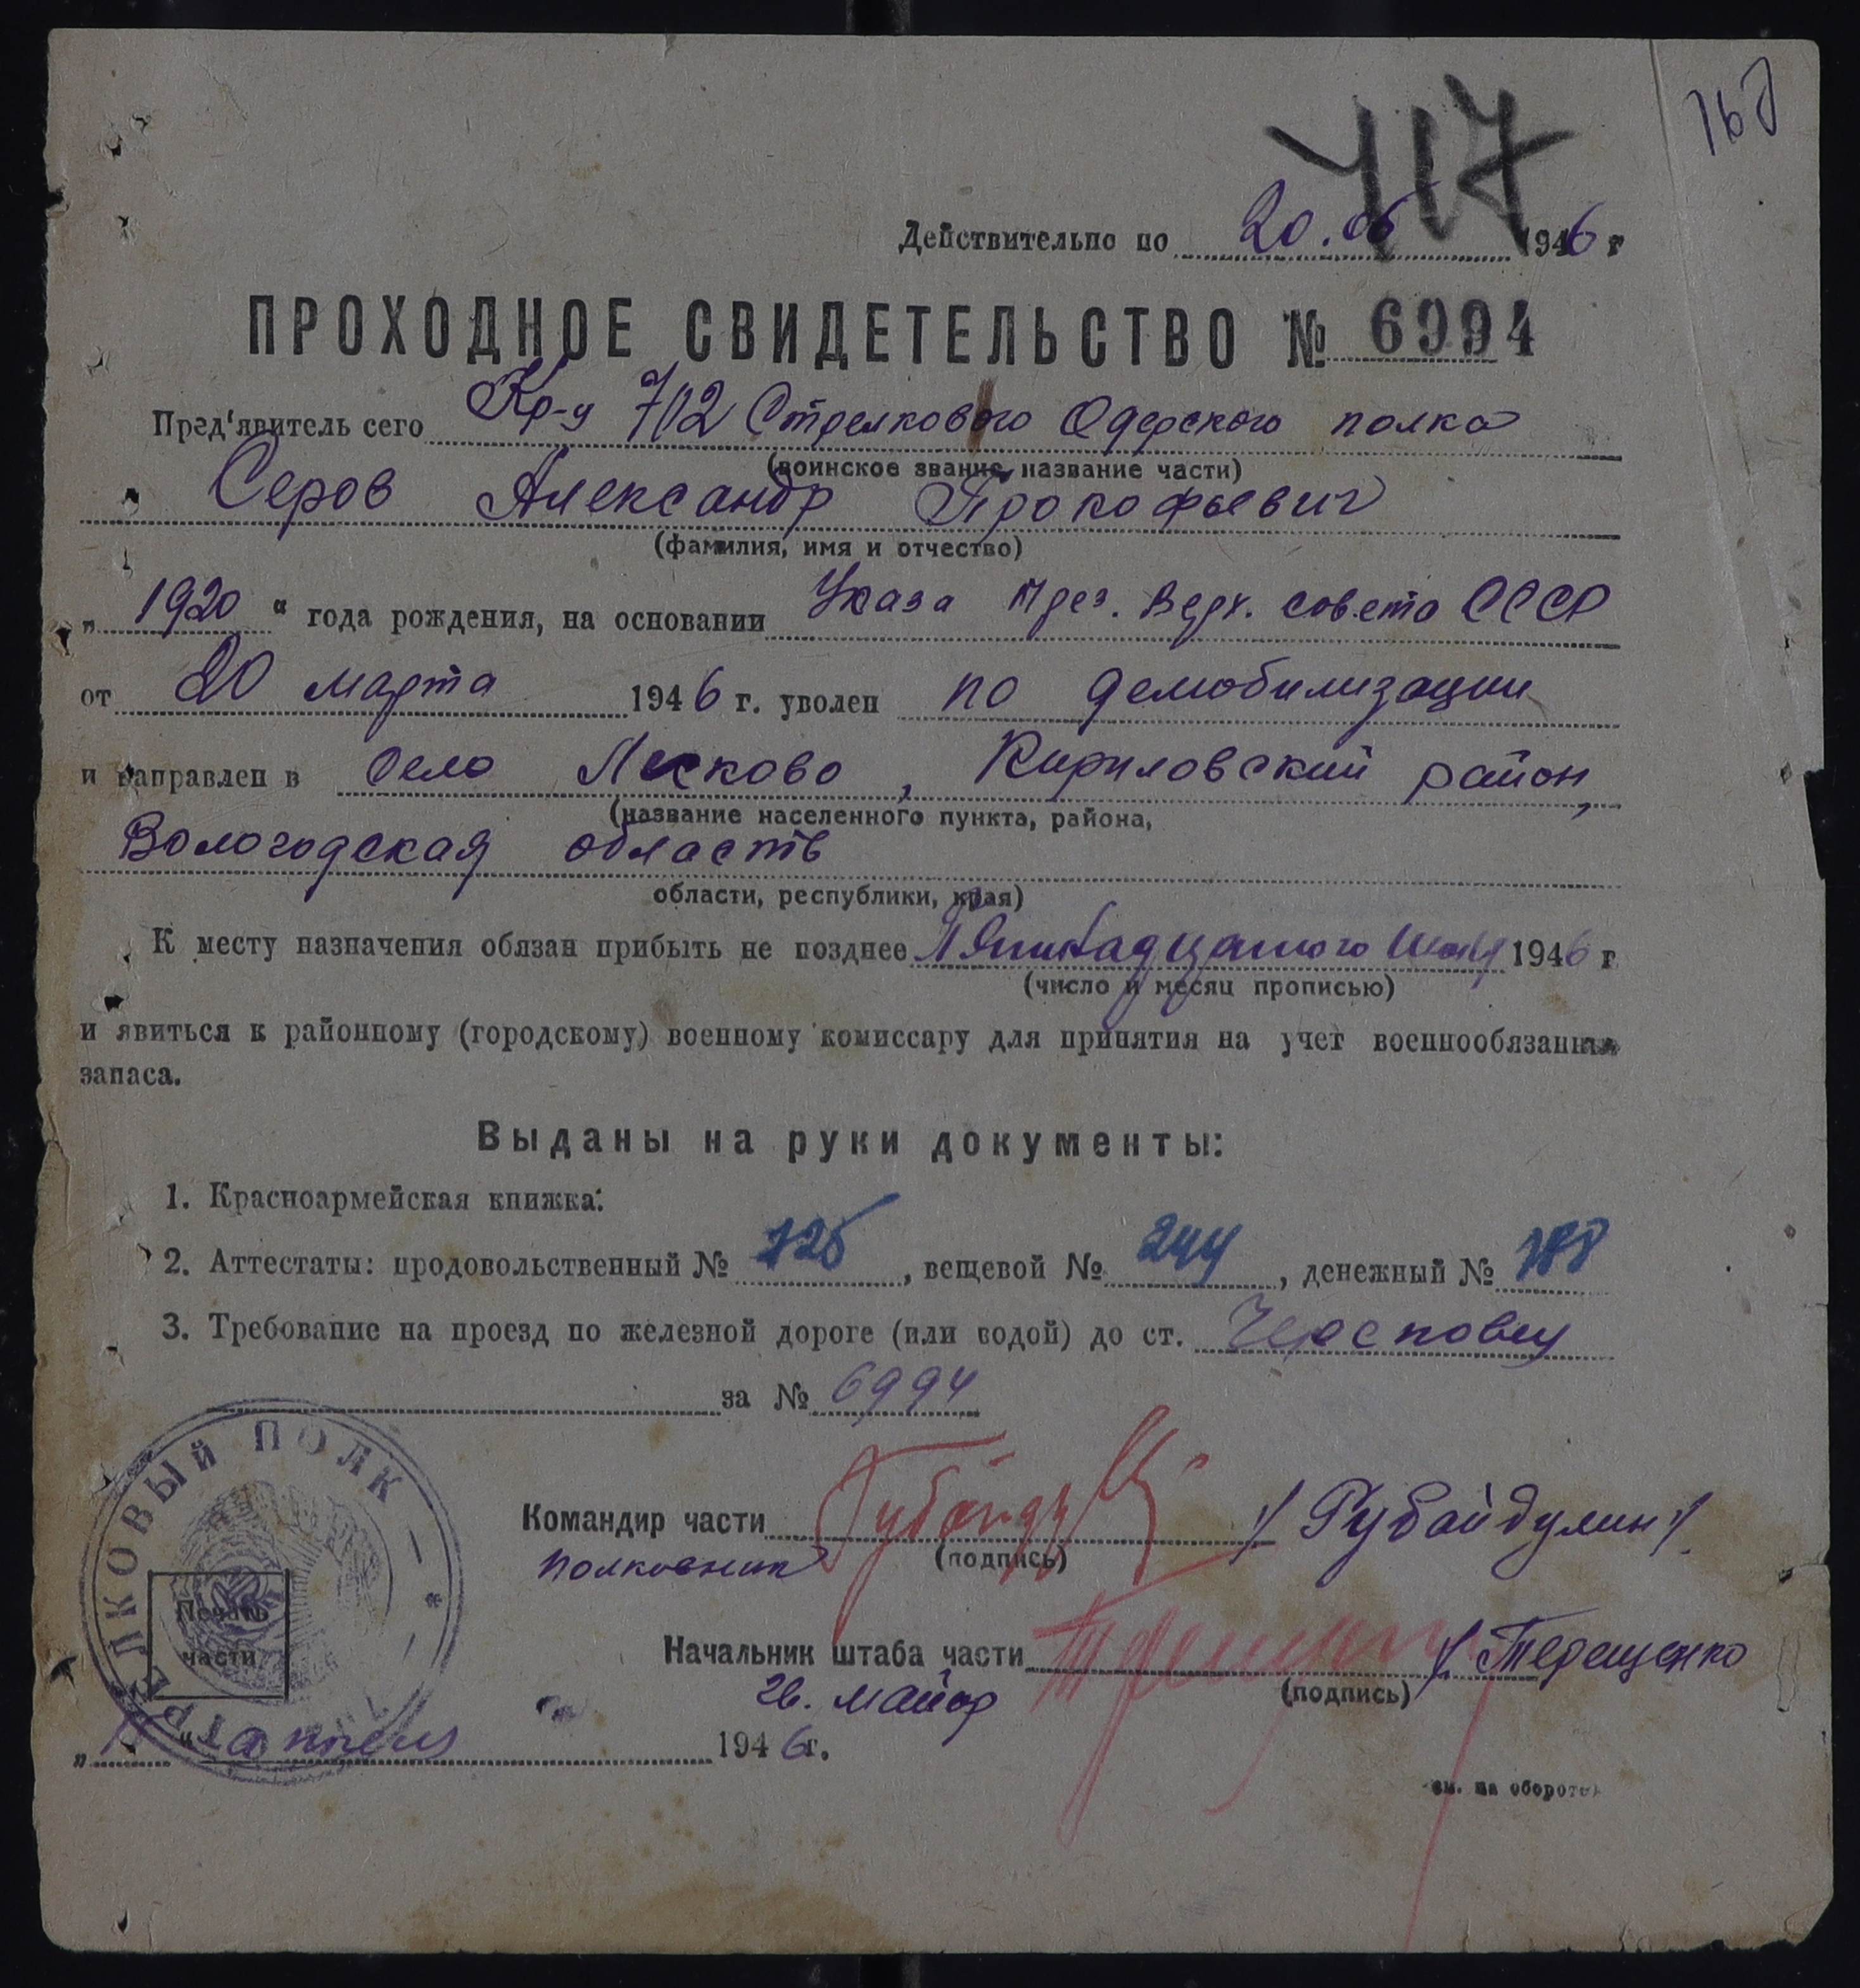 417
Действительно по 20.06 1946 г
ПРОХОДНОЕ СВИДЕТЕЛЬСТВО № 6994
Пред'явитель сего Кр-ц 712 Стрелкового Одерского полка
(воинское звание, название части)
Серов Александр Прокофьевич
(фамилия, имя и отчество)
„ 1920 “ года рождения, на основании Указа През. Верх. совета СССР
от 20 марта 1946 г. уволен по демобилизации
и направлен в село Лесково, Кириловский район,
(название населенного пункта, района,
Вологодская область
области, республики, края)
К месту назначения обязан прибыть не позднее Пятнадцатого 1946 г
(число и месяц прописью)
и явиться к районному (городскому) военному комиссару для принятия на учет военнообязанных
запаса.
Выданы на руки документы:
1. Красноармейская книжка.
2. Аттестаты: продовольственный № 725, вещевой № 244, денежный №
3. Требование на проезд по железной дороге (или водой) до ст. Череповец
за № 6994
СТРЕЛКОВЫЙ ПОЛК
Печать
части
Командир части / Губайдулин /
полковник (подпись)
Начальник штаба части / Терещенко
гв. майор (подпись)
„ “ апреля 1946 г.
см. на обороте)